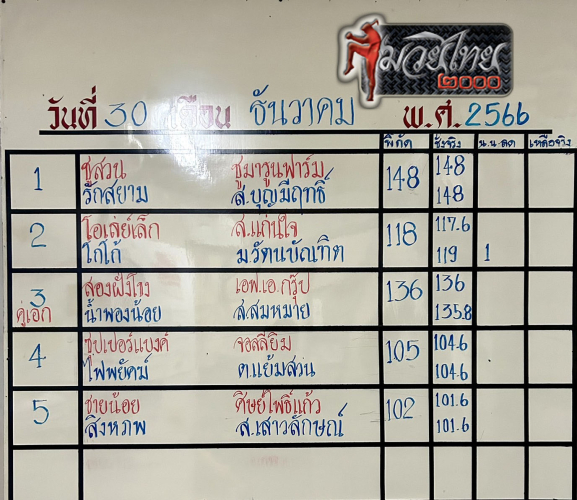 มวยไทย
๒๐๐๐
วันที่ 30 เดือน ธันวาคม พ.ศ. 2566
พิกัด ชั่งจริง น.น.ลด เหลือจริง
1 ชูสวน ชูมารูนฟาร์ม 148 148
รักสยาม ส.บุญมีฤทธิ์ 148
2 โอเล่ย์เล็ก ส.แก่นใจ 118 117.6
โกโก้ ม.รัตนบัณฑิต 119 1
3 สองฝั่งโขง เอฟ.เอ.กรุ๊ป 136 136
คู่เอก น้ำพองน้อย ส.สมหมาย 135.8
4 ซุปเปอร์แบงค์ จอลลี่ยิม 105 104.6
ไฟพยัคฆ์ ต.แย้มสวน 104.6
5 ชายน้อย ศิษย์โพธิ์แก้ว 102 101.6
สิงหภพ ส.เสาวลักษณ์ 101.6